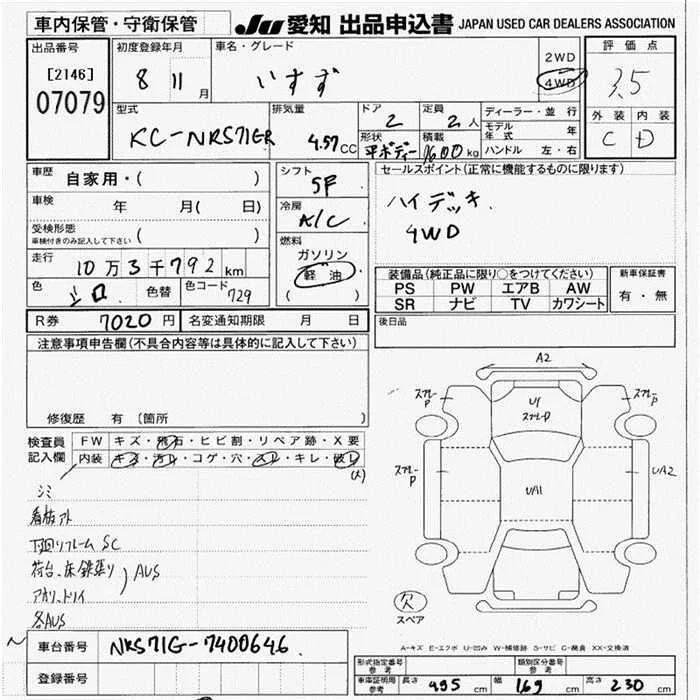 車内保管・守衛保管
JU 愛知 出品申込書 JAPAN USED CAR DEALERS ASSOCIATION
出品番号 初度登録年月 車名・グレード 2WD 評価点
[2146] 8 11月 いすず 4WD 3.5
07079
型式 排気量 ドア 定員 ディーラー・並行 外装 内装
KC-NRS71GR 4.57CC 2 2人 モデル年式 年 C D
形状 積載
平ボディー 1600kg ハンドル 左・右
車歴 自家用・( ) シフト 5F セールスポイント(正常に機能するものに限ります)
車検 年 月( 日) 冷房 A/C ハイデッキ.
受検形態 4WD
車検付きのみ記入して下さい ( )
燃料
走行 10万3千792km ガソリン
軽油
( )
装備品(純正品に限り○をつけてください) 新車保証書
色 シロ 色替 色コード 729 PS PW エアB AW 有・無
SR ナビ TV カワシート
R券 7020円 名変通知期限 月 日 後日品
注意事項申告欄(不具合内容等は具体的に記入して下さい)
修復歴 有 [箇所 ]
検査員 FW キズ・飛石・ヒビ割・リペア跡・X要
記入欄 内装 キズ・汚レ・コゲ・穴・スレ・キレ・破レ
(大)
シミ
看板アト
下回リフレーム SC
荷台、床鉄張り AUS
アオリ、トリイ
各AUS
A2
スプレーP スプレーP
U1
スプレーP
スプレーP UA2
UA11
欠
スペア
A-キズ E-エクボ U-凹み W-補修跡 S-サビ C-腐食 XX-交換済
車台番号 NRS71G-7400646
登録番号
形式指定番号 参考 類別区分番号 参考
車庫証明用 参考 長さ 495cm 幅 169cm 高さ 230cm